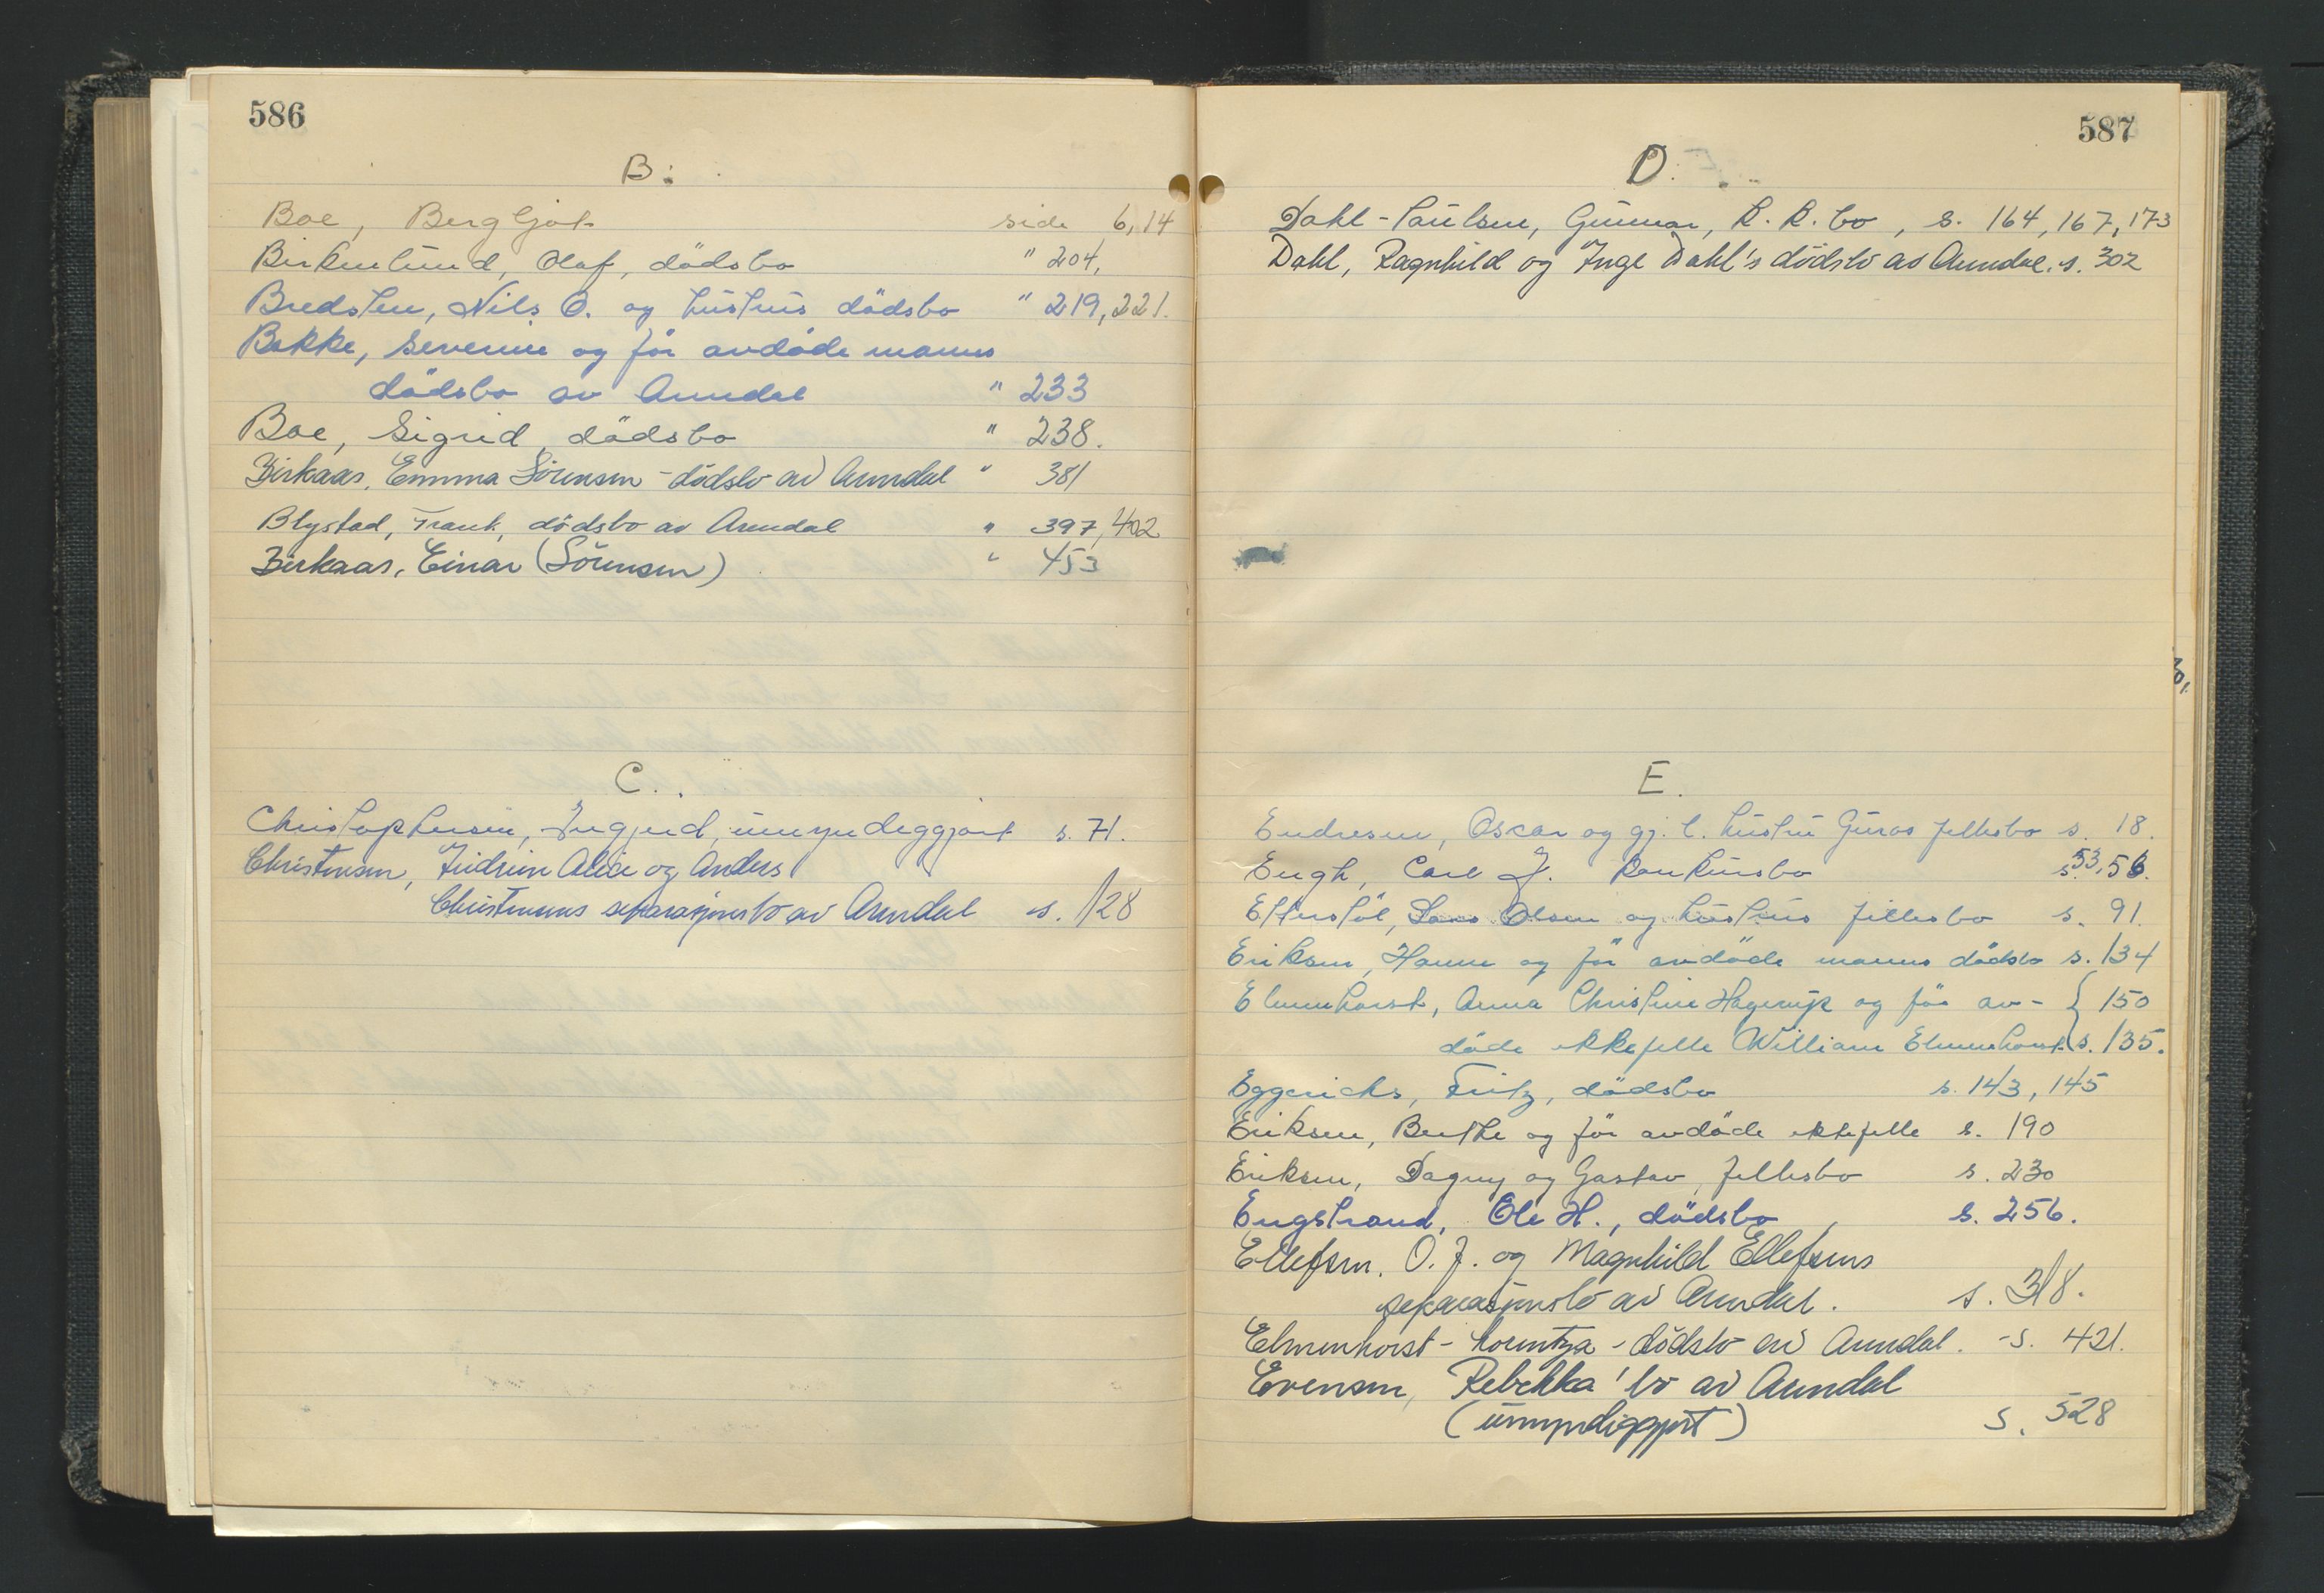 586
B.
Boe, Bergljot side 6,14
Birkenlund, Olaf, dödsbo " 204,
Bredsten, Nils O. og hustrus dödsbo " 219, 221.
Bakke, Severine og før avdøde manns
dödsbo av Arendal " 233
Boe, Sigrid, dödsbo " 238.
Birkaas, Emma Sörensen - dödsbo av Arendal " 381
Blystad, Frank, dödsbo av Arendal " 397, 402
Birkaas, Einar (Sörensen) " 453
C.
Christophersen, Ingjerd, umyndiggjort s. 71.
Christensen, Alice og Anders
Christensens separasjonsbo av Arendal s. 128
587
D.
Dahl-Paulsen, Gunnar, K. K. bo, s. 164, 167, 173
Dahl, Ragnhild og Inge Dahl's dödsbo av Arendal. s. 302
E.
Endresen, Oscar og gj. l. hustru Guros fellesbo s. 18.
Engh, Carl J. konkursbo s. 53, 56.
Efterstöl, Lars Olsen og hustrus fellesbo s. 91.
Eriksen, Hanne og för avdöde manns dödsbo s. 134
Elmenhorst, Anna Christine Hagerup og för av- { 150
döde ektefelle William Elmenhorst s. 135.
Eggerichs, Fritz, dödsbo s. 143, 145
Eriksen, Berthe og för avdöde ektefelle s. 190
Eriksen, Dagny og Gustav, fellesbo s. 230
Engstrand, Ole H., dödsbo s. 256.
Ellefsen. O. J. og Magnhild Ellefsens
separasjonsbo av Arendal. s. 318.
Elmenhorst - Lorentza - dödsbo av Arendal. - s. 421.
Evensen, Rebekka' bo av Arendal
(umyndiggjort) s. 528